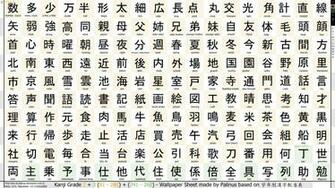 数多少万半形太細広長点丸交光角計直線
矢弱強高同親母父姉兄弟妹自友体毛頭顔
首心時曜朝昼夜分週春夏秋冬今新古間方
北南東西遠近前後内外場地国園谷野原里
市京風雪雲池海岩星室戸家寺通門道話言
答声聞語読書記紙画絵図工教晴思考知才
理算作元食肉馬牛魚鳥羽鳴麦米茶色黄黒
来行帰歩走止活店買売午汽弓回会組船明
社切電毎合当台楽公引科歌刀番用何丁世
両主乗予事仕他代住使係倍全具写列助勉
Kanji Grade - Wallpaper Sheet made by Palinus based on